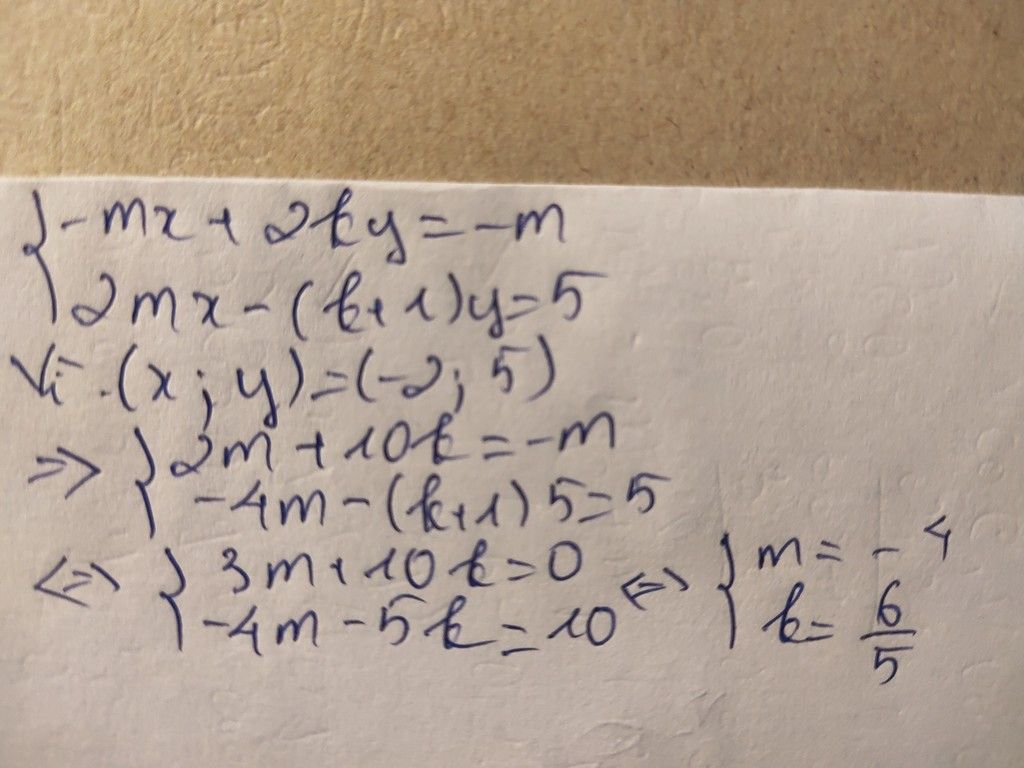 { -mx + 2ky = -m
2mx - (k+1)y = 5
Vì (x; y) = (-2; 5)
=> { 2m + 10k = -m
-4m - (k+1) 5 = 5
<=> { 3m + 10k = 0 <=> { m = -4
-4m - 5k = 10 k = 6/5